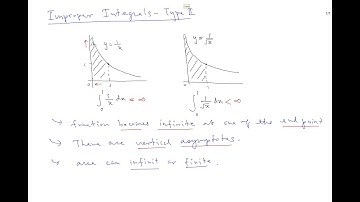 Improper Integrals - Type II
y = 1/x
y = 1/√x
1
1
0
1
0
1
∫₀¹ 1/x dx = ∞
∫₀¹ 1/√x dx < ∞
↳ function becomes infinite at one of the end point
↳ There are vertical asymptotes.
↳ area can infinit or finite.